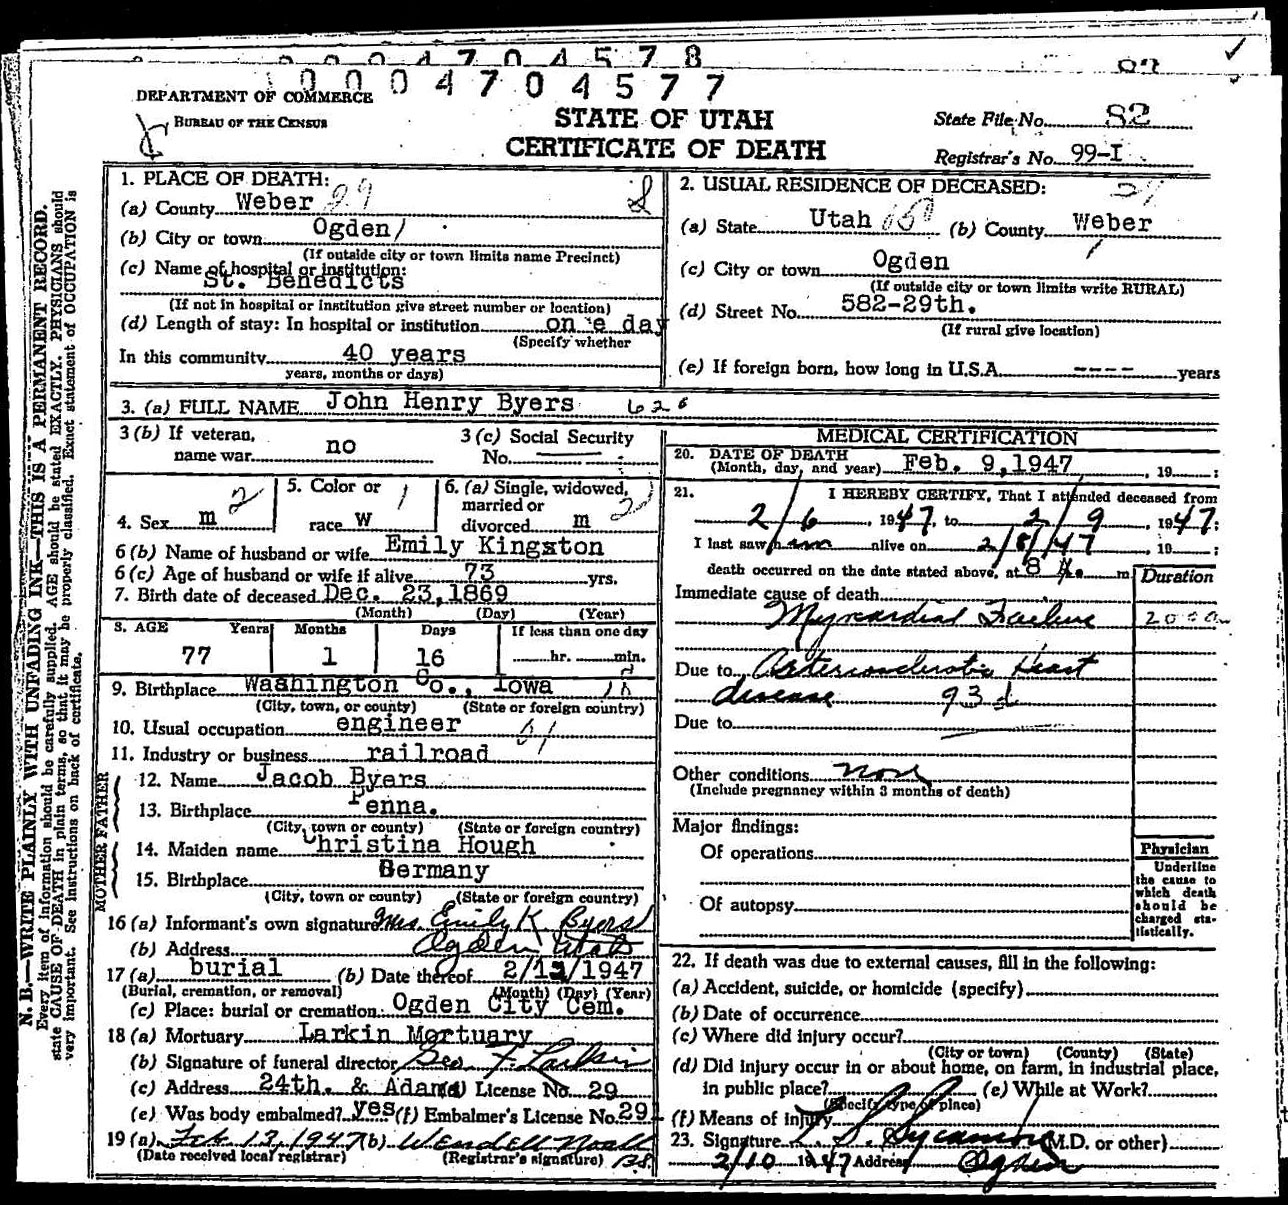 0004704578
0004704577
DEPARTMENT OF COMMERCE
BUREAU OF THE CENSUS
STATE OF UTAH
CERTIFICATE OF DEATH
State File No. 82
Registrar's No. 99-I
N. B.—WRITE PLAINLY WITH UNFADING INK—THIS IS A PERMANENT RECORD.
Every item of information should be carefully supplied. AGE should be stated EXACTLY. PHYSICIANS should
state CAUSE OF DEATH in plain terms, so that it may be properly classified. Exact statement of OCCUPATION is
very important. See instructions on back of certificate.
1. PLACE OF DEATH:
(a) County Weber 29
(b) City or town Ogden
(If outside city or town limits name Precinct)
(c) Name of hospital or institution:
St. Benedicts
(If not in hospital or institution give street number or location)
(d) Length of stay: In hospital or institution one day
(Specify whether
In this community 40 years
years, months or days)
2. USUAL RESIDENCE OF DECEASED:
(a) State Utah (b) County Weber
(c) City or town Ogden
(If outside city or town limits write RURAL)
(d) Street No. 582-29th.
(If rural give location)
(e) If foreign born, how long in U.S.A. ---- years
3. (a) FULL NAME John Henry Byers 620
3 (b) If veteran, name war no
3 (c) Social Security No.
4. Sex m 2
5. Color or race W 1
6. (a) Single, widowed, married or divorced m 2
6 (b) Name of husband or wife Emily Kingston
6 (c) Age of husband or wife if alive 73 yrs.
7. Birth date of deceased Dec. 23, 1869
(Month) (Day) (Year)
8. AGE Years Months Days If less than one day
77 1 16 hr. min.
9. Birthplace Washington Co., Iowa
(City, town, or county) (State or foreign country)
10. Usual occupation engineer
11. Industry or business railroad
FATHER
12. Name Jacob Byers
13. Birthplace Penna.
(City, town or county) (State or foreign country)
MOTHER
14. Maiden name Christina Hough
15. Birthplace Germany
(City, town or county) (State or foreign country)
16 (a) Informant's own signature Mrs. Emily K Byers
(b) Address Ogden Utah
17 (a) burial (b) Date thereof 2/12/1947
(Burial, cremation, or removal) (Month) (Day) (Year)
(c) Place: burial or cremation Ogden City Cem.
18 (a) Mortuary Larkin Mortuary
(b) Signature of funeral director Geo. F. Larkin
(c) Address 24th. & Adams (d) License No. 29
(e) Was body embalmed? yes (f) Embalmer's License No. 291
19 (a) Feb 13, 1947 (b) Wendell Noall
(Date received local registrar) (Registrar's signature)
MEDICAL CERTIFICATION
20. DATE OF DEATH
(Month, day, and year) Feb. 9, 1947, 19 ;
21. I HEREBY CERTIFY, That I attended deceased from
2/6 1947, to 2/9, 1947;
I last saw him alive on 2/8/47, 19 ;
death occurred on the date stated above, at 8 m
Duration
Immediate cause of death
Myocardial Failure
Due to Arteriosclerotic Heart
disease 93d
Due to
Other conditions none
(Include pregnancy within 3 months of death)
Major findings:
Of operations
Of autopsy
Physician
Underline
the cause to
which death
should be
charged sta-
tistically.
22. If death was due to external causes, fill in the following:
(a) Accident, suicide, or homicide (specify)
(b) Date of occurrence
(c) Where did injury occur?
(City or town) (County) (State)
(d) Did injury occur in or about home, on farm, in industrial place,
in public place? (e) While at Work?
(Specify type of place)
(f) Means of injury
23. Signature (M.D. or other)
2/10 1947 Address Ogden